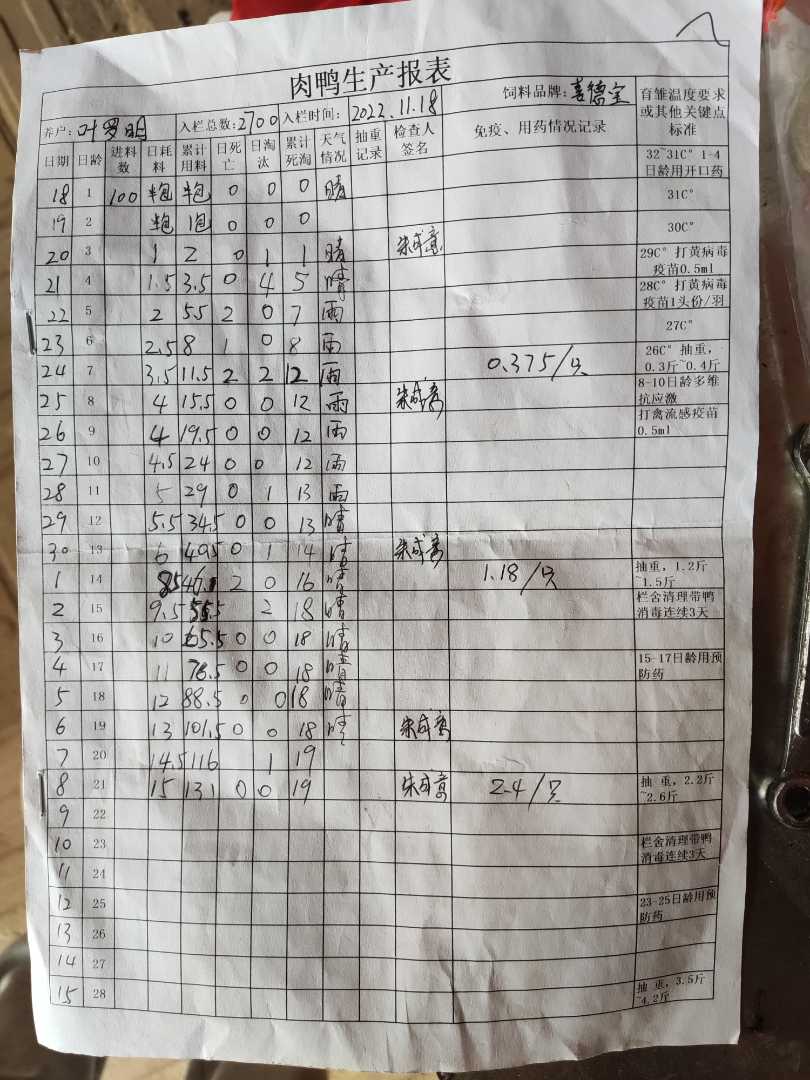 肉鸭生产报表
养户: 叶罗明 入栏总数: 2700 入栏时间: 2022.11.18 饲料品牌: 喜德宝 育雏温度要求或其他关键点标准
日期 日龄 进料数 日耗料 累计用料 日死亡 日淘汰 累计死淘 天气情况 抽重记录 检查人签名 免疫、用药情况记录
18 1 100 半包 半包 0 0 0 晴 32~31C° 1-4日龄用开口药
19 2 半包 1包 0 0 0 31C°
20 3 1 2 0 1 1 晴 朱成高 30C°
21 4 1.5 3.5 0 4 5 晴 29C° 打黄病毒疫苗0.5ml
22 5 2 5.5 2 0 7 雨 28C° 打黄病毒疫苗1头份/羽
23 6 2.5 8 1 0 8 雨 27C°
24 7 3.5 11.5 2 2 12 雨 0.375/只 26C° 抽重，0.3斤~0.4斤
25 8 4 15.5 0 0 12 雨 朱成高 8-10日龄多维抗应激
26 9 4 19.5 0 0 12 雨 打禽流感疫苗0.5ml
27 10 4.5 24 0 0 12 雨
28 11 5 29 0 1 13 雨
29 12 5.5 34.5 0 0 13 晴
30 13 6 40.5 0 1 14 晴 朱成高
1 14 2 0 16 晴 1.18/只 抽重，1.2斤~1.5斤
2 15 9.5 2 18 晴 栏舍清理带鸭消毒连续3天
3 16 10 65.5 0 0 18 晴
4 17 11 76.5 0 0 18 晴 15-17日龄用预防药
5 18 12 88.5 0 0 18 晴
6 19 13 101.5 0 0 18 晴 朱成高
7 20 14.5 116 1 19
8 21 15 131 0 0 19 朱成高 2.4/只 抽重，2.2斤~2.6斤
9 22
10 23 栏舍清理带鸭消毒连续3天
11 24
12 25 23-25日龄用预防药
13 26
14 27
15 28 抽重，3.5斤~4.2斤